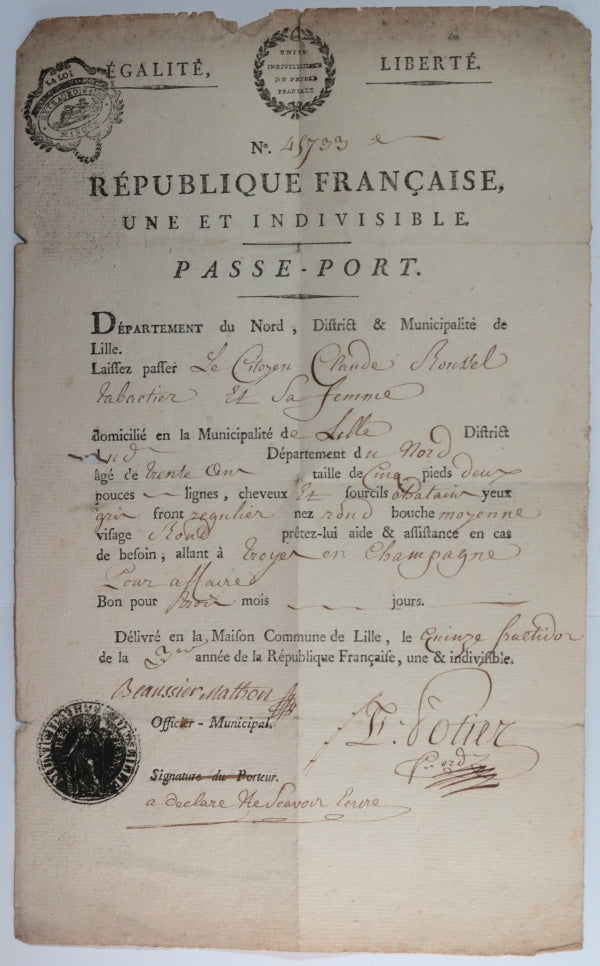 ÉGALITÉ,
LIBERTÉ.
UNITÉ
INDIVISIBILITÉ
DU PEUPLE
FRANÇAIS
LA LOI
Nº. 41733
RÉPUBLIQUE FRANÇAISE,
UNE ET INDIVISIBLE.
PASSE-PORT.
DÉPARTEMENT du Nord, District & Municipalité de
Lille.
Laissez passer Le Citoyen Claude Roussel
tabactier Et Sa femme
domicilié en la Municipalité de Lille District
id Département du Nord
âgé de trente ans taille de Cinq pieds deux
pouces — lignes, cheveux Et sourcils Chatain yeux
gris front regulier nez rond bouche moyenne
visage Rond prêtez-lui aide & assistance en cas
de besoin, allant à troyes en Champagne
Pour affaires
Bon pour trois mois — jours.
Délivré en la Maison Commune de Lille, le Quinze fructidor
de la 3me année de la République Française, une & indivisible.
Beaussier Mathon
Officier-Municipal.
F. Potier
Signature du Porteur.
a declaré Ne Scavoir Ecrire